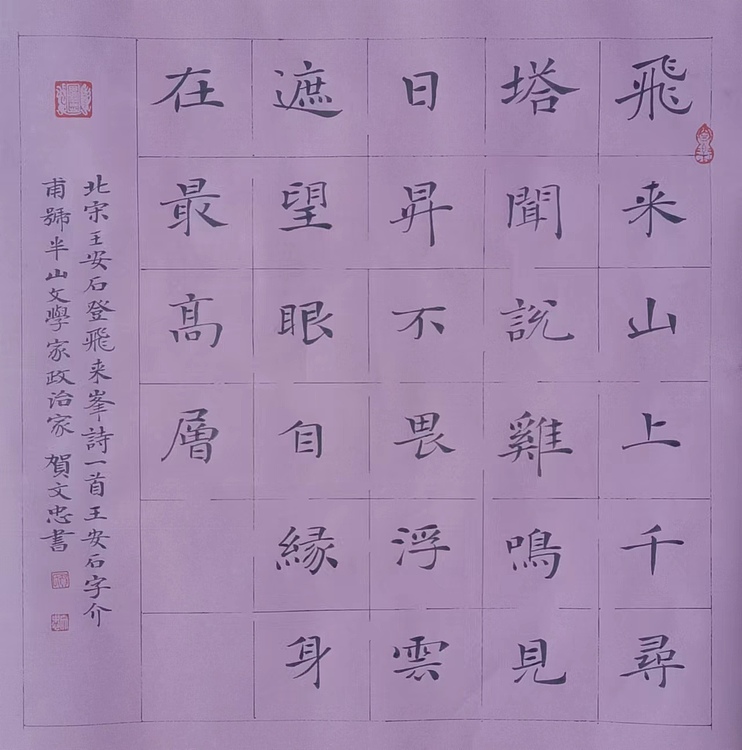 飛来山上千尋
塔聞説雞鳴見
日昇不畏浮雲
遮望眼自緣身
在最高層
北宋王安石登飛来峯詩一首王安石字介
甫號半山文學家政治家 賀文忠書